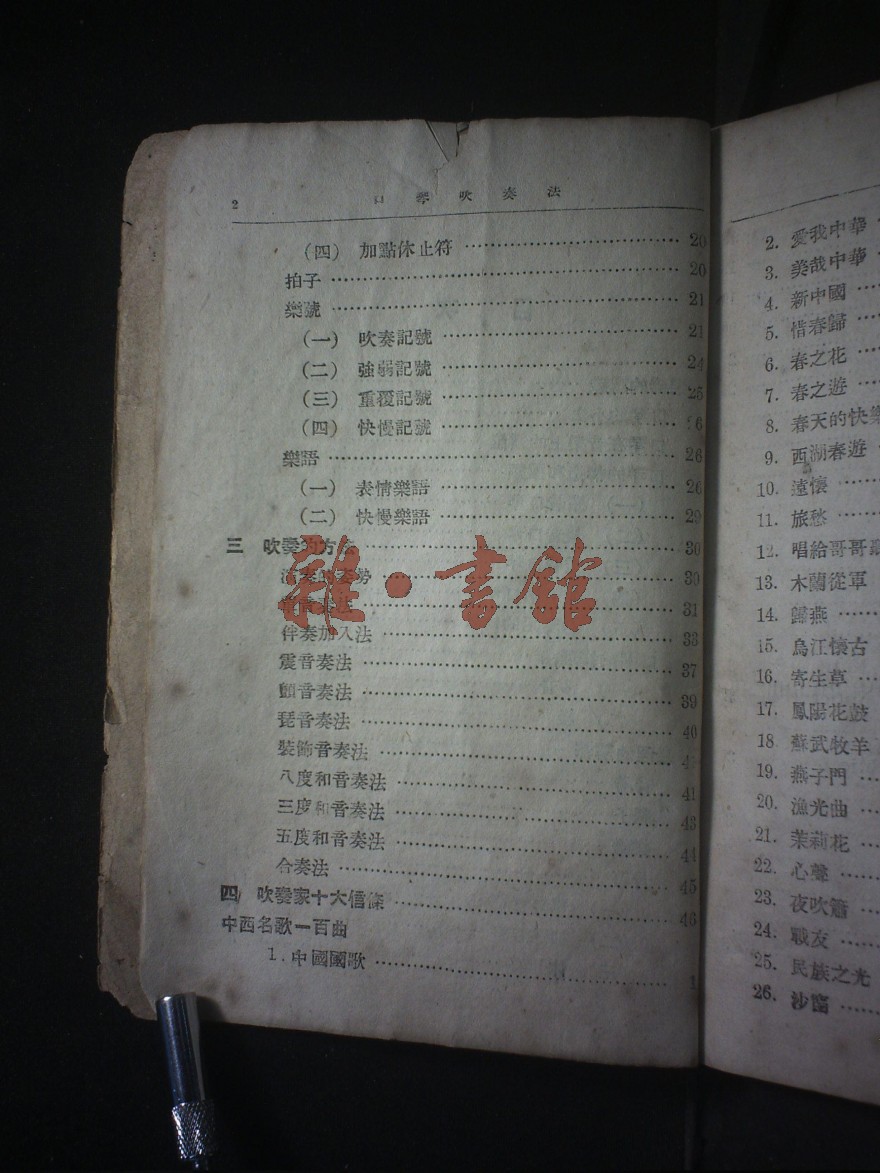 2 口琴吹奏法
(四) 加點休止符 20
拍子 20
樂號 21
(一) 吹奏記號 21
(二) 強弱記號 24
(三) 重覆記號 25
(四) 快慢記號 26
樂語 26
(一) 表情樂語 26
(二) 快慢樂語 29
三 吹奏的方法 30
30
31
伴奏加入法 33
震音奏法 37
顫音奏法 39
琵音奏法 40
裝飾音奏法
八度和音奏法 41
三度和音奏法 43
五度和音奏法 44
合奏法 45
四 吹奏家十大信條 46
中西名歌一百曲
1. 中國國歌 1
雜·書館
2. 愛我中華
3. 美哉中華
4. 新中國
5. 惜春歸
6. 春之花
7. 春之遊
8. 春天的快樂
9. 西湖春遊
10. 遠懷
11. 旅愁
12. 唱給哥哥
13. 木蘭從軍
14. 歸燕
15. 烏江懷古
16. 寄生草
17. 鳳陽花鼓
18 蘇武牧羊
19. 燕子門
20. 漁光曲
21. 茉莉花
22. 心聲
23. 夜吹簫
24. 戰友
25. 民族之光
26.